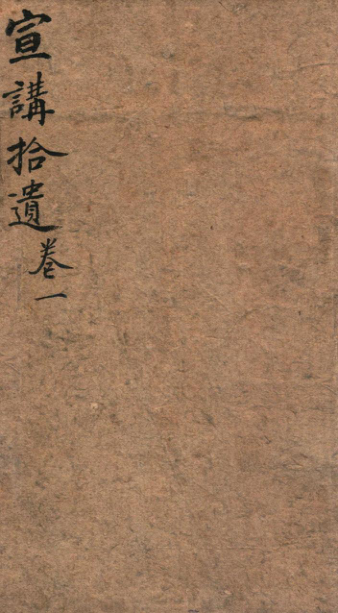 宣講拾遺卷一